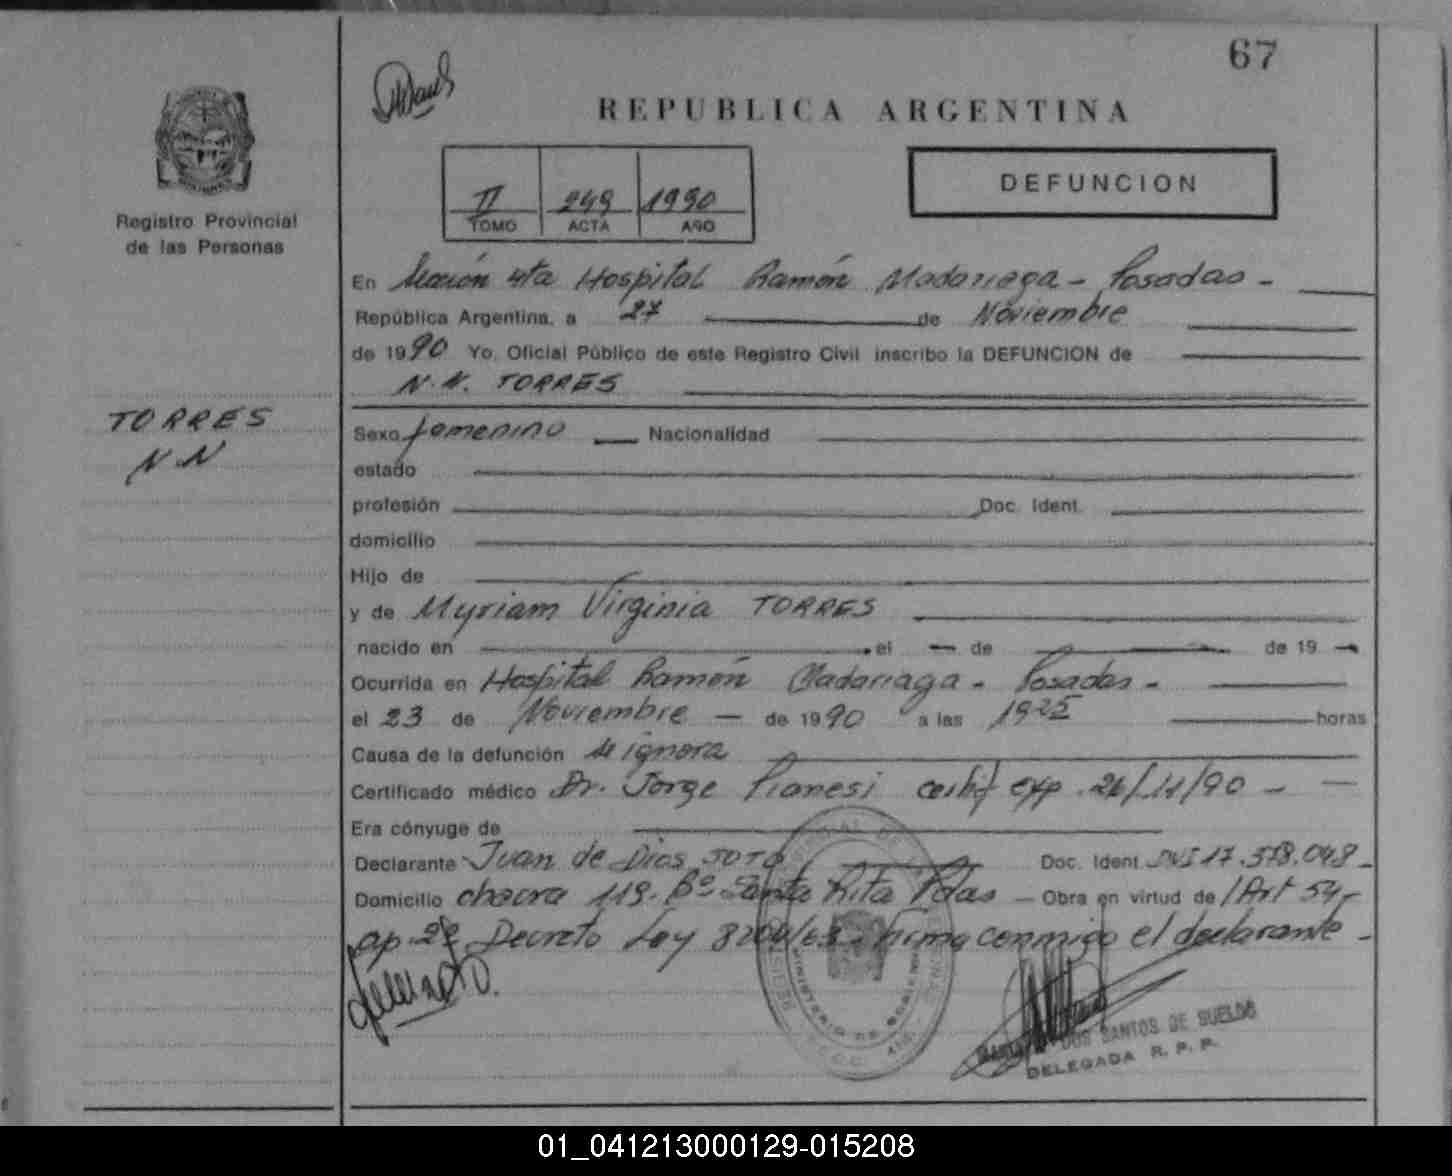 67
REPUBLICA ARGENTINA
DEFUNCION
II 249 1990
TOMO ACTA AÑO
Registro Provincial
de las Personas
TORRES
N.N
En Sección 4ta Hospital Ramón Madariaga - Posadas -
República Argentina, a 27 de Noviembre
de 1990 Yo, Oficial Público de este Registro Civil inscribo la DEFUNCION de
N.N. TORRES
Sexo femenino Nacionalidad
estado
profesión Doc. Ident.
domicilio
Hijo de
y de Myriam Virginia TORRES
nacido en el de de 19
Ocurrida en Hospital Ramón Madariaga - Posadas -
el 23 de Noviembre de 1990 a las 1925 horas
Causa de la defunción se ignora
Certificado médico Dr. Jorge Pianesi certif exp. 26/11/90 -
Era cónyuge de
Declarante Juan de Dios SOTO Doc. Ident DNI 17.578.048
Domicilio chacra 119. Bº Santa Rita Pdas - Obra en virtud de /Art 54-
ap. 2º Decreto Ley 8204/63 - firma conmigo el declarante -
MINISTERIO DE GOBIERNO
DOS SANTOS DE SUELDO
DELEGADA R. P. P.
01_041213000129-015208